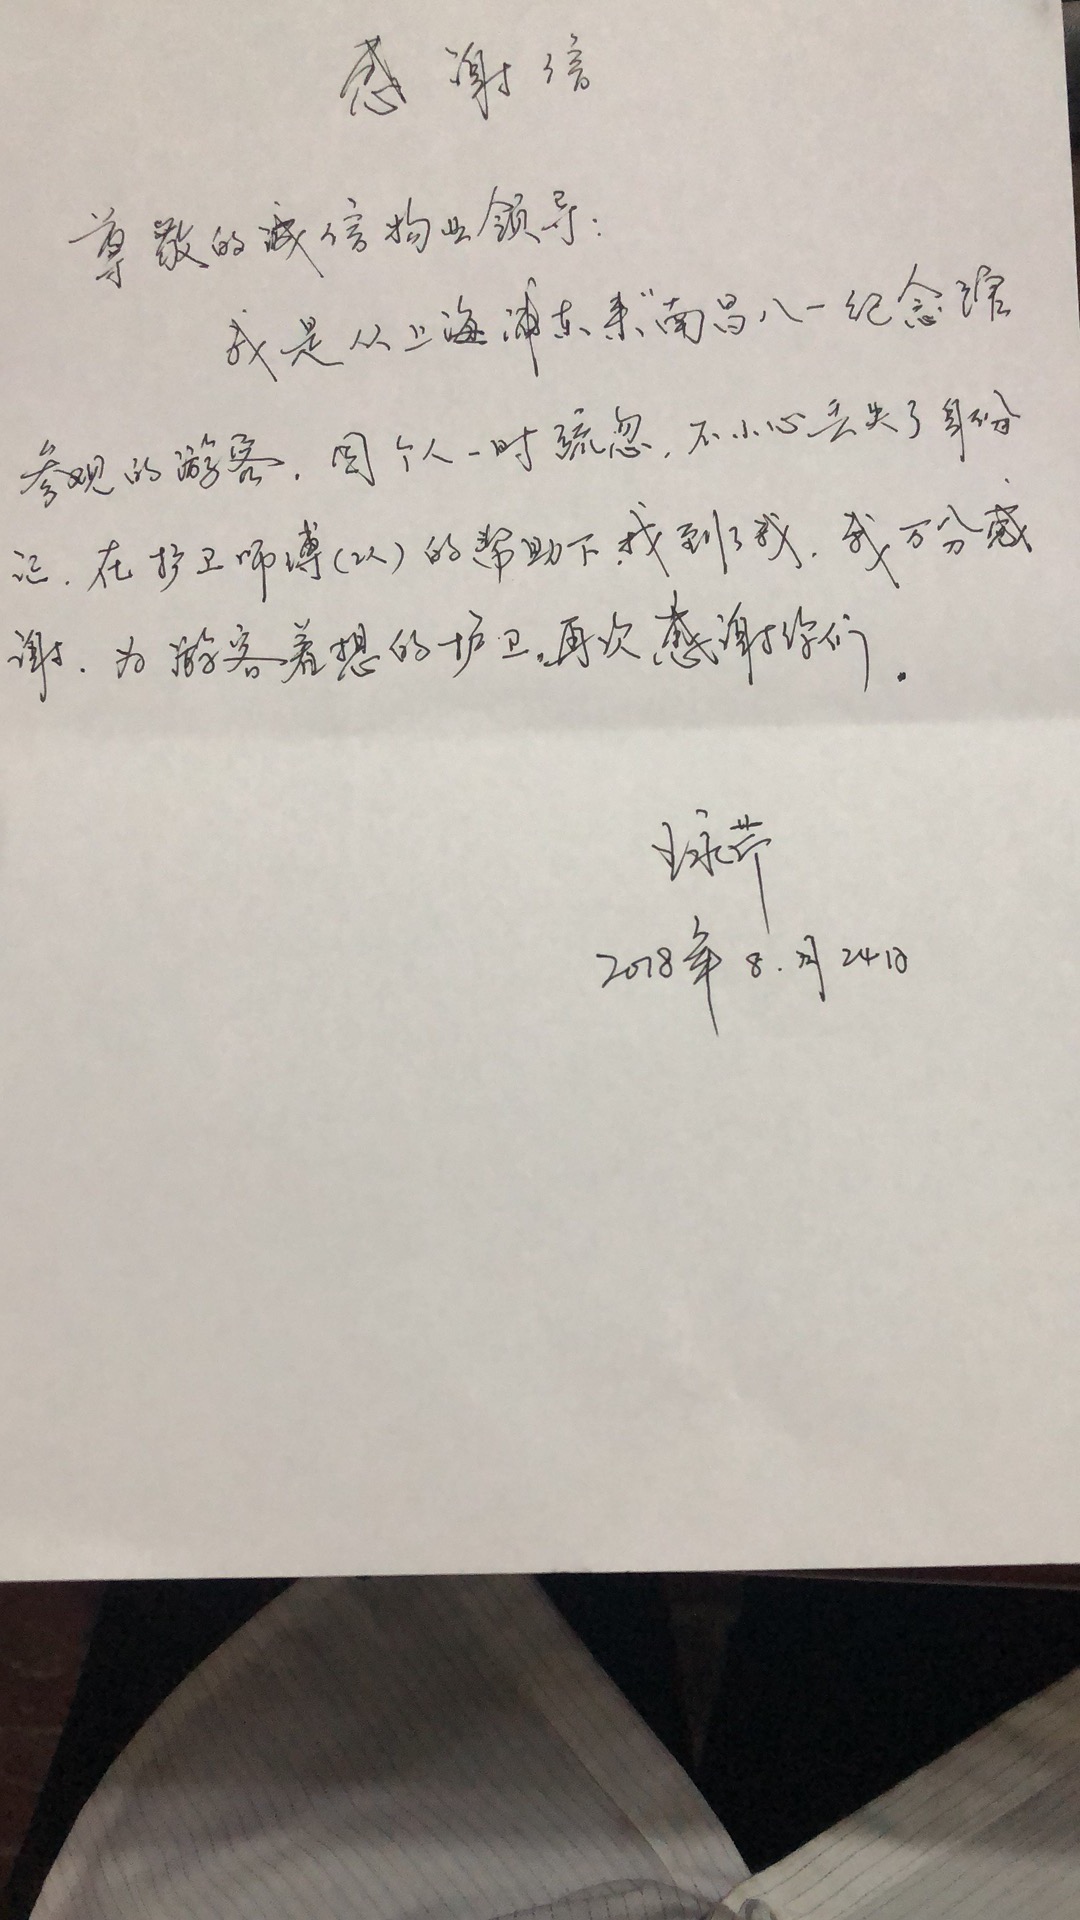 感谢信
尊敬的诚信物业领导：
我是从上海浦东来"南昌八一纪念馆
参观的游客，因个人一时疏忽，不小心丢失了身份
证，在护卫师傅(以)的帮助下，找到了我，我万分感
谢，为游客着想的护卫。再次感谢你们。
王永芹
2018年8.月24日